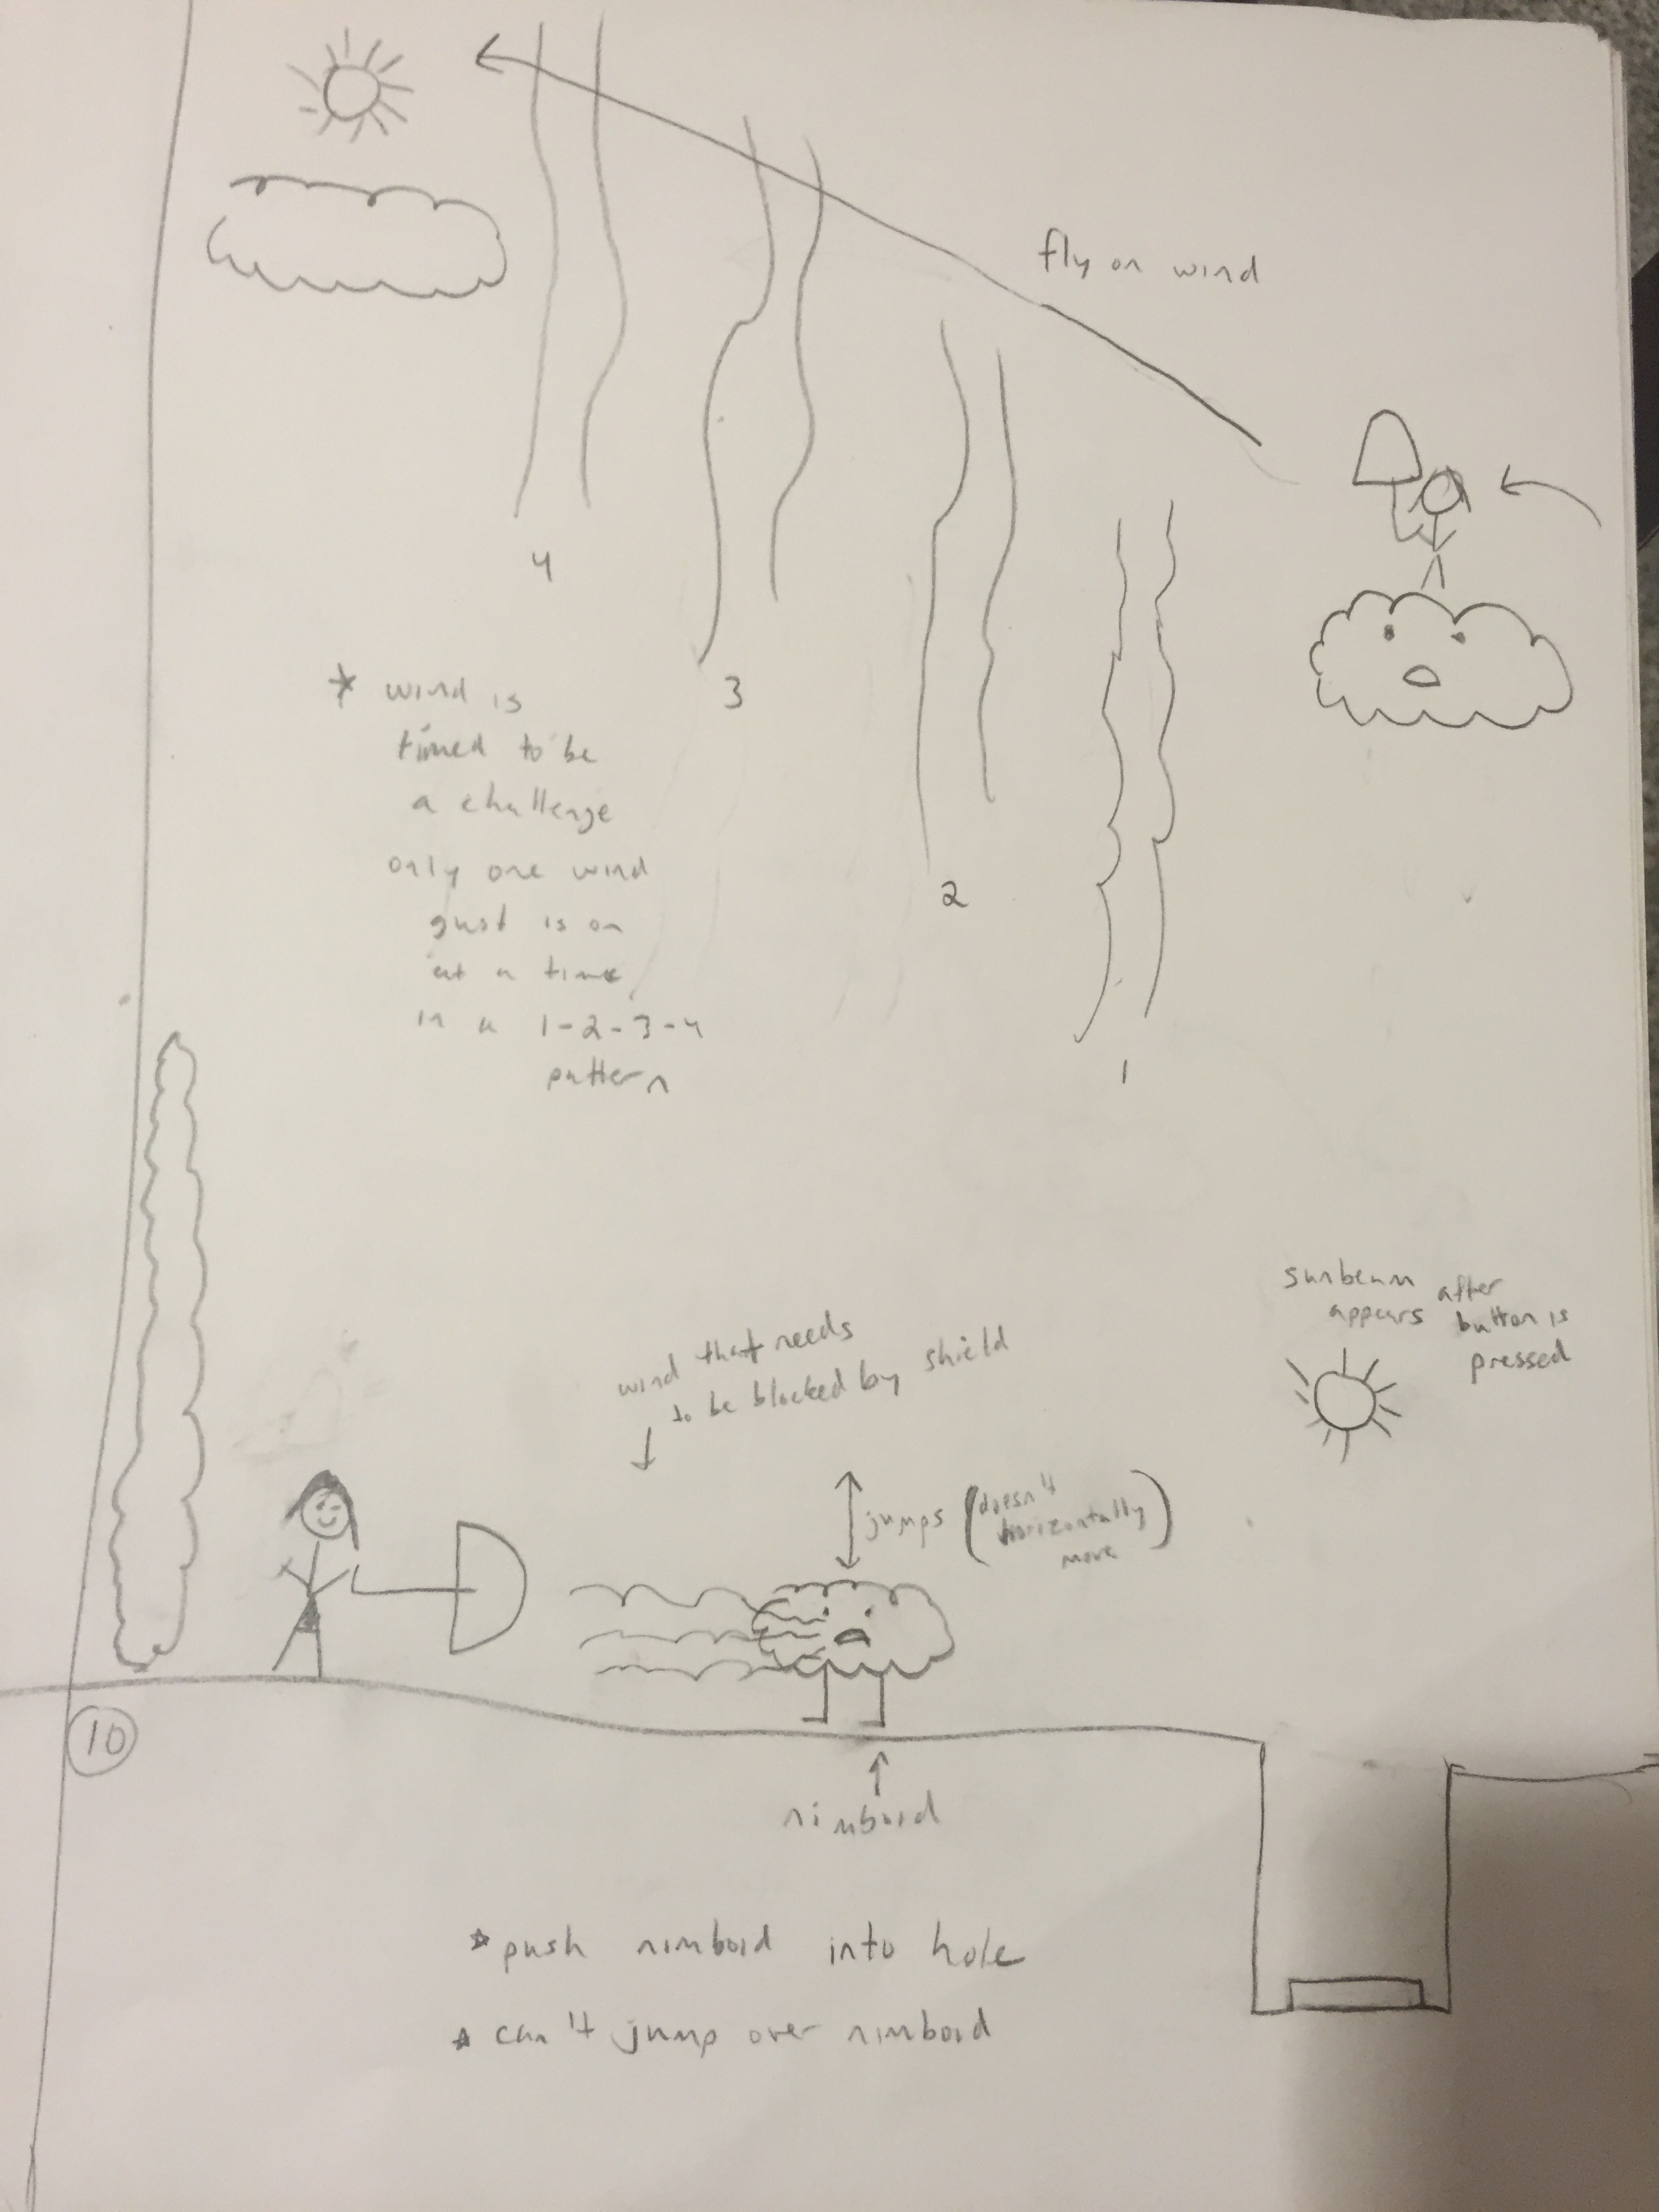 fly on wind
4
3
2
1
* wind is
timed to be
a challenge
only one wind
gust is on
at a time
in a 1-2-3-4
pattern
sunbeam after
appears button is
pressed
wind that needs
to be blocked by shield
jumps (doesn't
horizontally
move)
10
nimboid
* push nimboid into hole
* can't jump over nimboid